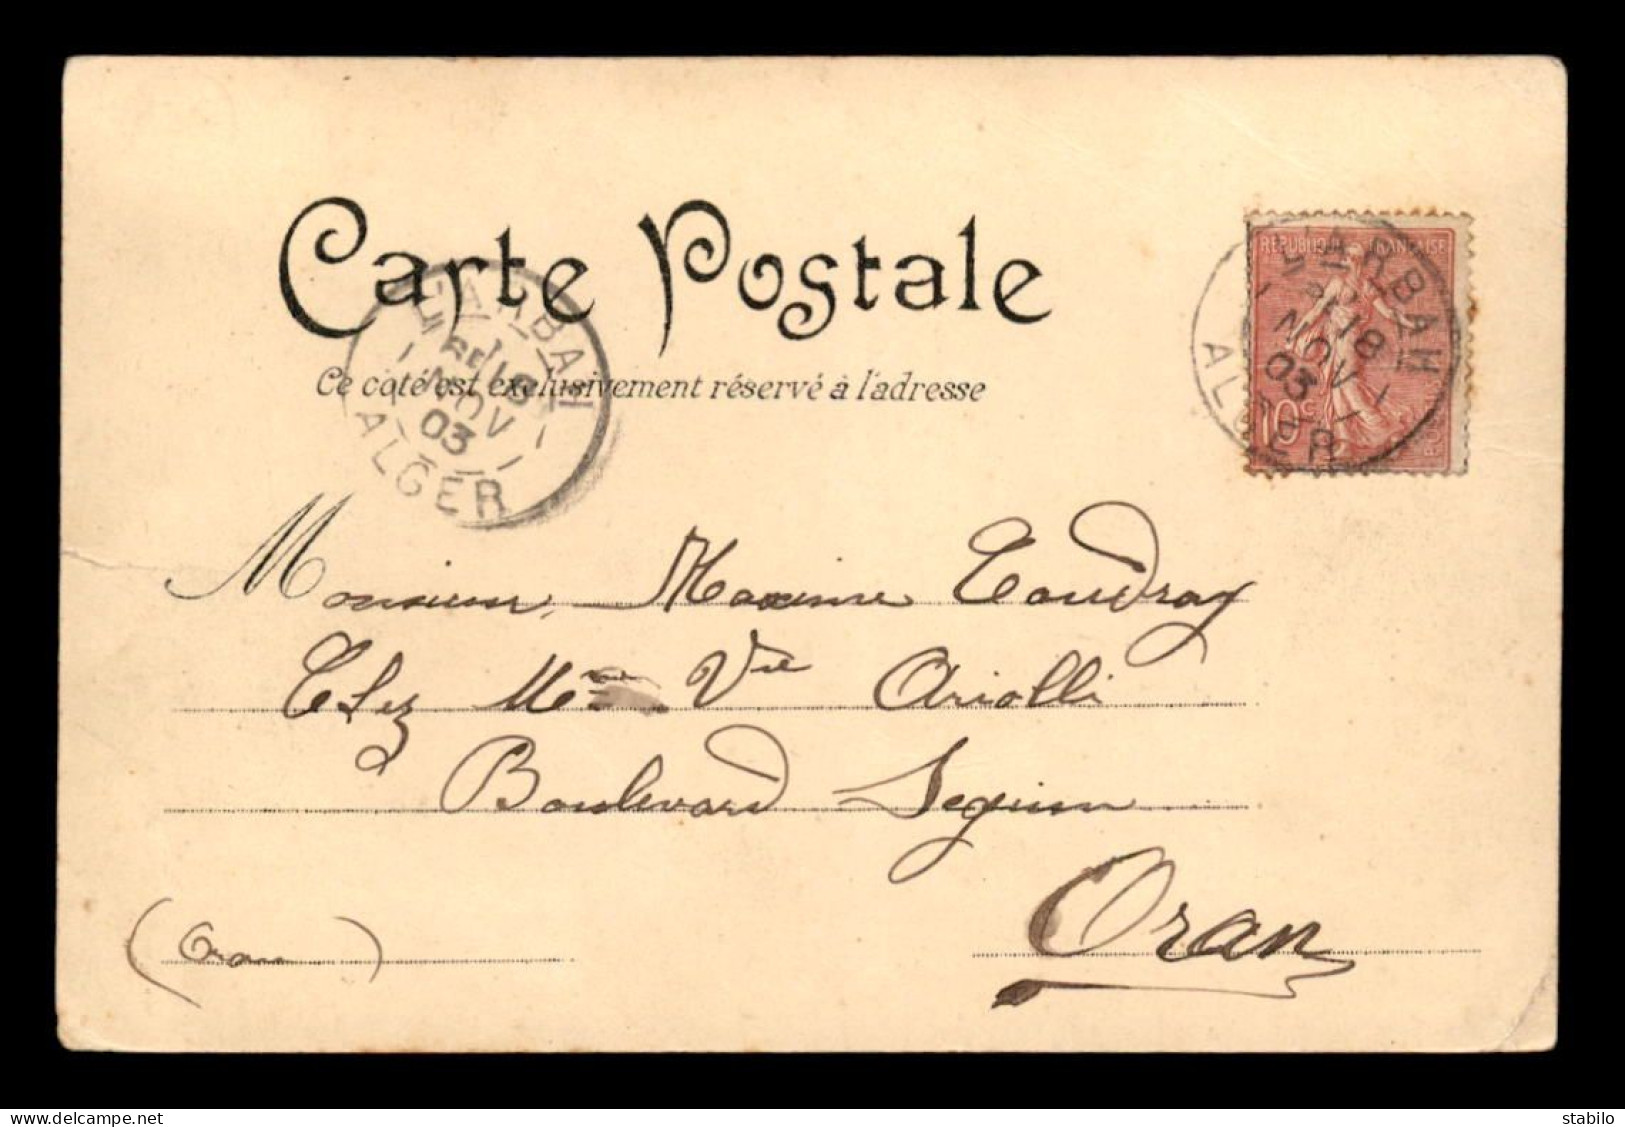 Carte Postale
Ce coté est exclusivement réservé à l'adresse
L'ARBAH
18
NOV
03
ALGER
RÉPUBLIQUE FRANÇAISE
10c
L'ARBAH
18
NOV
03
ALGER
Monsieur Maxime Coudray
Chez Mme Vve Ariolli
Boulevard Seguin
Oran
(Oran)
stabilo